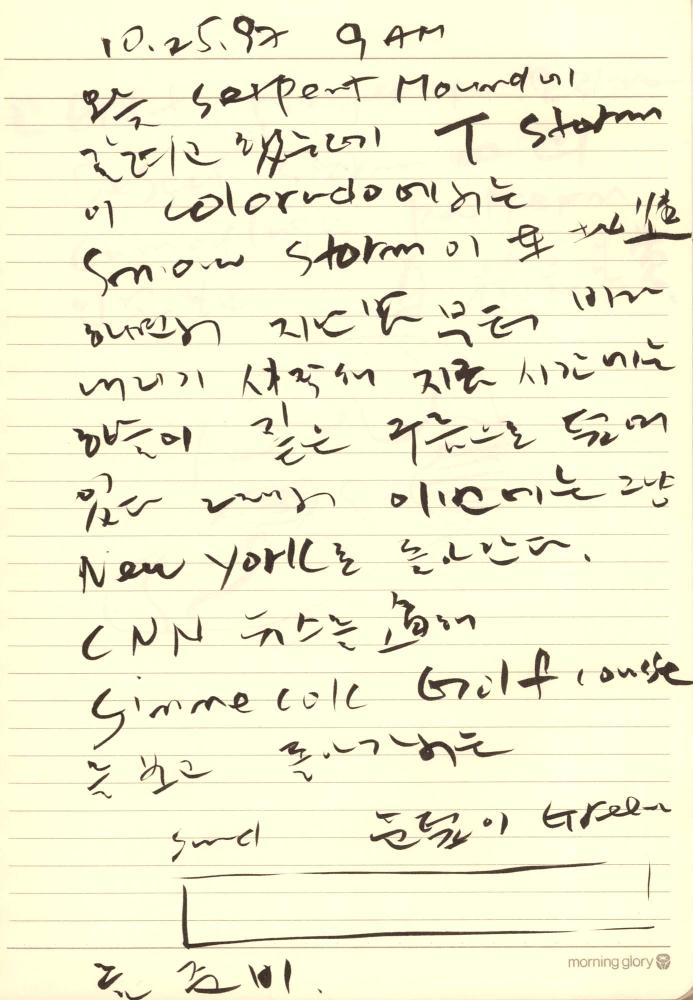 10.25.97 9 AM
오늘 Serpent Mound에
갈려고 했는데 T Storm
이 Colorado에서는
Snow Storm이 또
하면서 지난밤 부터 비가
내리기 시작해 지금 시간에는
하늘이 짙은 구름으로 덮여
있다 그래서 이번에는 그냥
New York로 돌아간다.
CNN 뉴스를 通해
Simmecolc Golf course
를 보고 돌아가서는
Sand 눈덮이 Green
를 준비.
morning glory